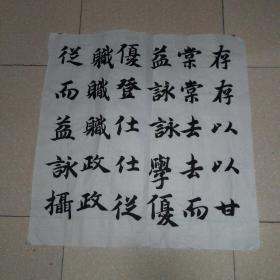 存存以以甘
棠棠去去而
益詠詠學優
優登仕仕從
職職職政政
從而益詠攝